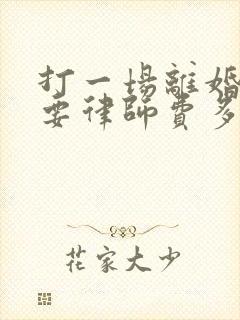 打一場離婚
要律師費多
花家大少